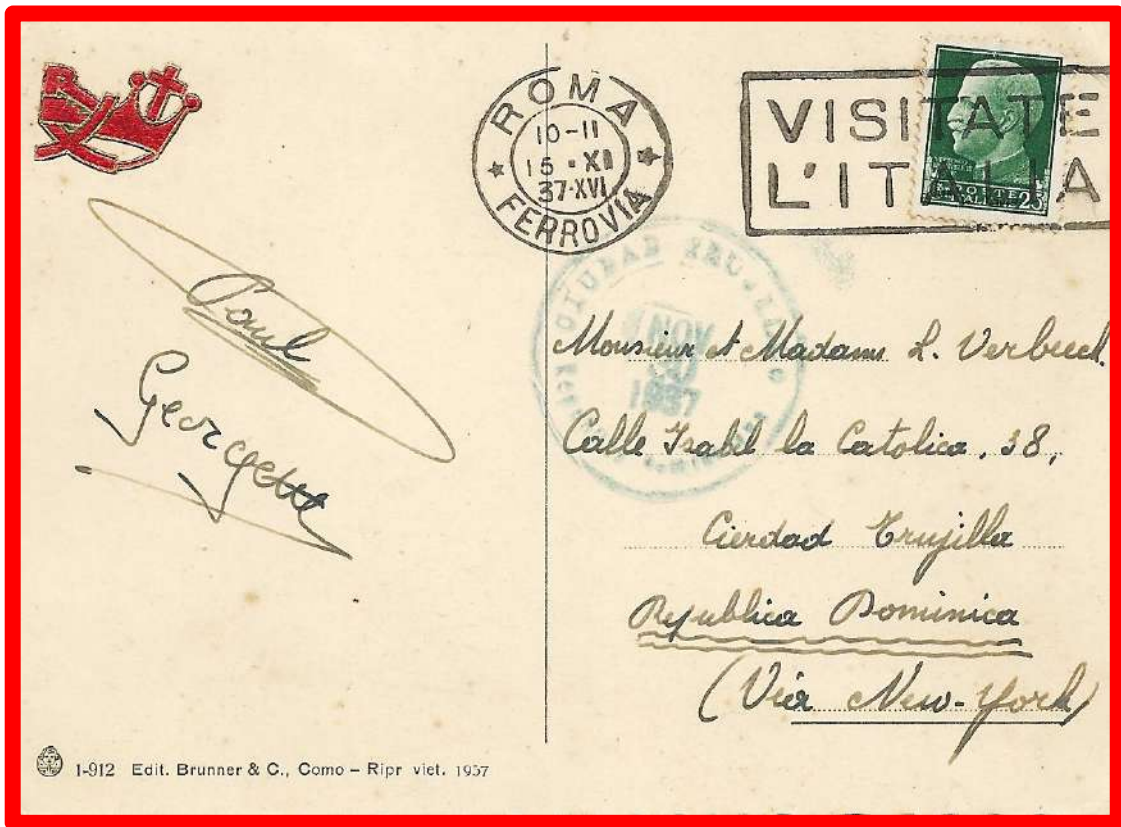 ROMA
10-11
15 · XI
37·XVI
FERROVIA
VISITATE
L'ITALIA
POSTE
25
NOV
1937
Paul
Georgette
Monsieur et Madame L.
Calle Isabel la Catolica, 38,
Ciudad Trujilla
Republica Dominica
(Via New-York)
1-912 Edit. Brunner & C., Como – Ripr viet. 1937